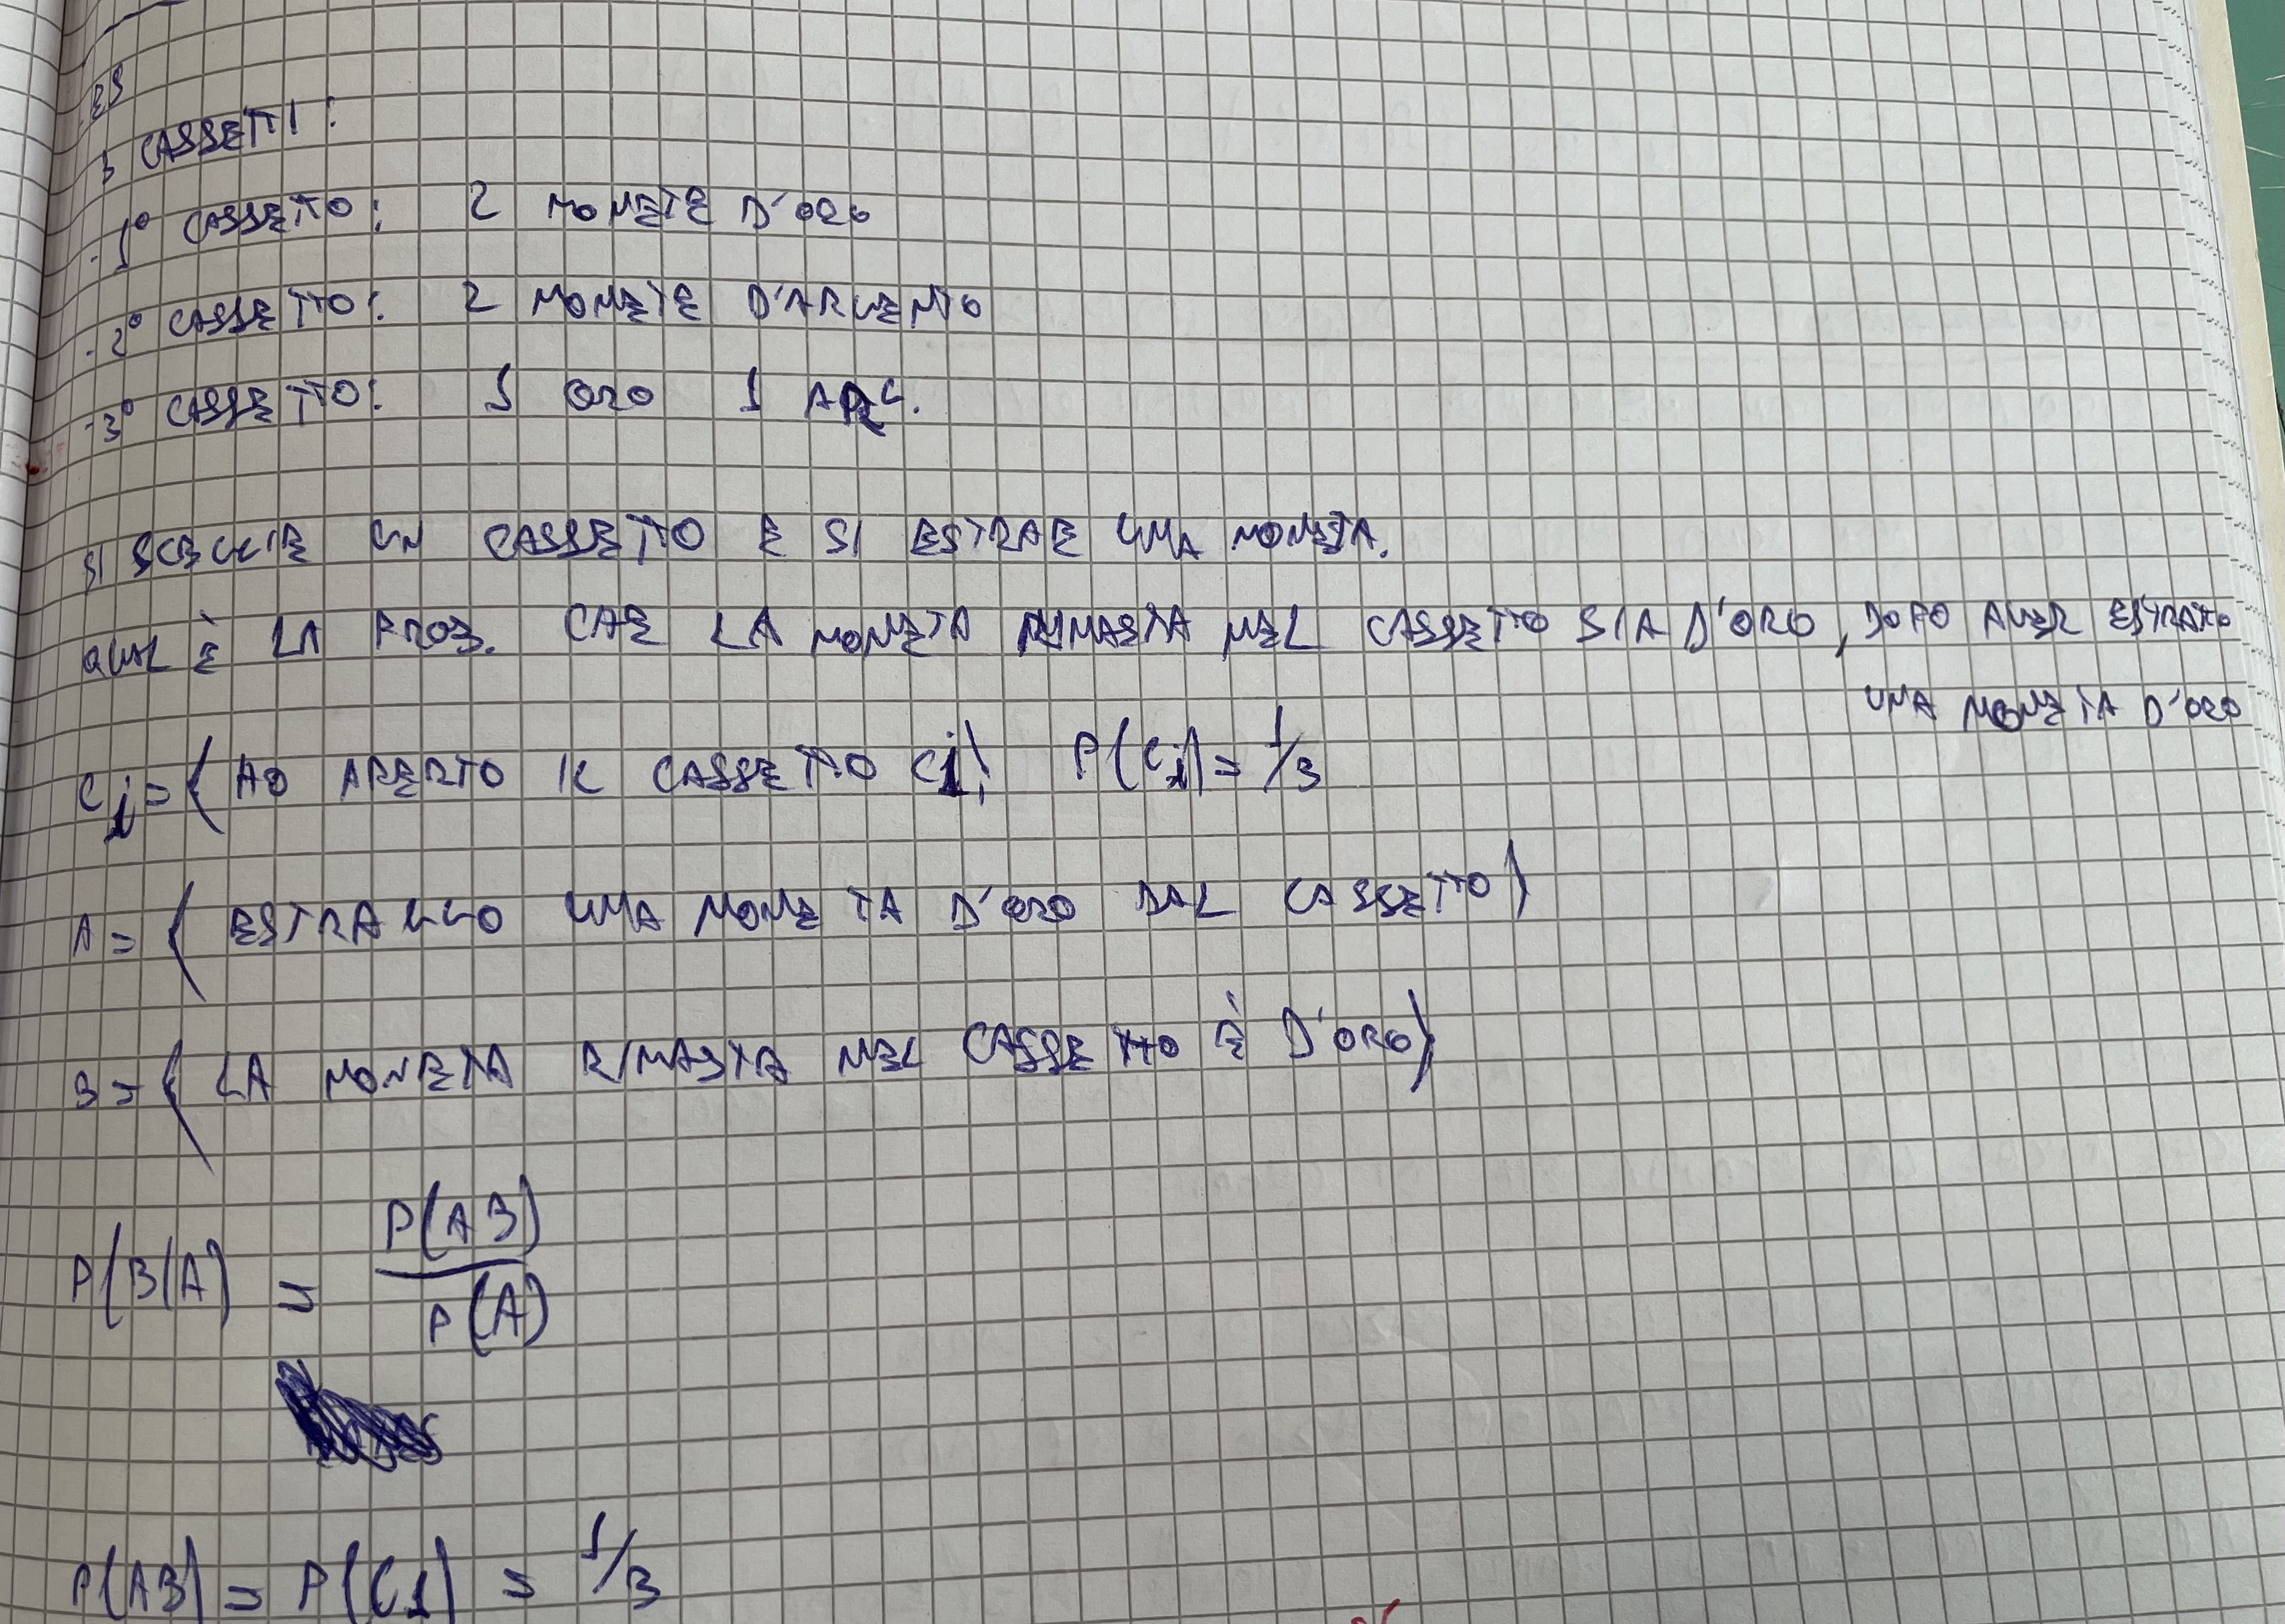 ES
3 CASSETTI:
- 1° CASSETTO: 2 MONETE D'ORO
- 2° CASSETTO: 2 MONETE D'ARGENTO
- 3° CASSETTO: 1 ORO 1 ARG.
SI SCEGLIE UN CASSETTO E SI ESTRAE UNA MONETA.
QUAL È LA PROB. CHE LA MONETA RIMASTA NEL CASSETTO SIA D'ORO, DOPO AVER ESTRATTO
UNA MONETA D'ORO
Ci = { HO APERTO IL CASSETTO Ci } P(Ci) = 1/3
A = { ESTRAGGO UNA MONETA D'ORO DAL CASSETTO }
B = { LA MONETA RIMASTA NEL CASSETTO È D'ORO }
P(B|A) = P(AB) / P(A)
P(AB) = P(C1) = 1/3